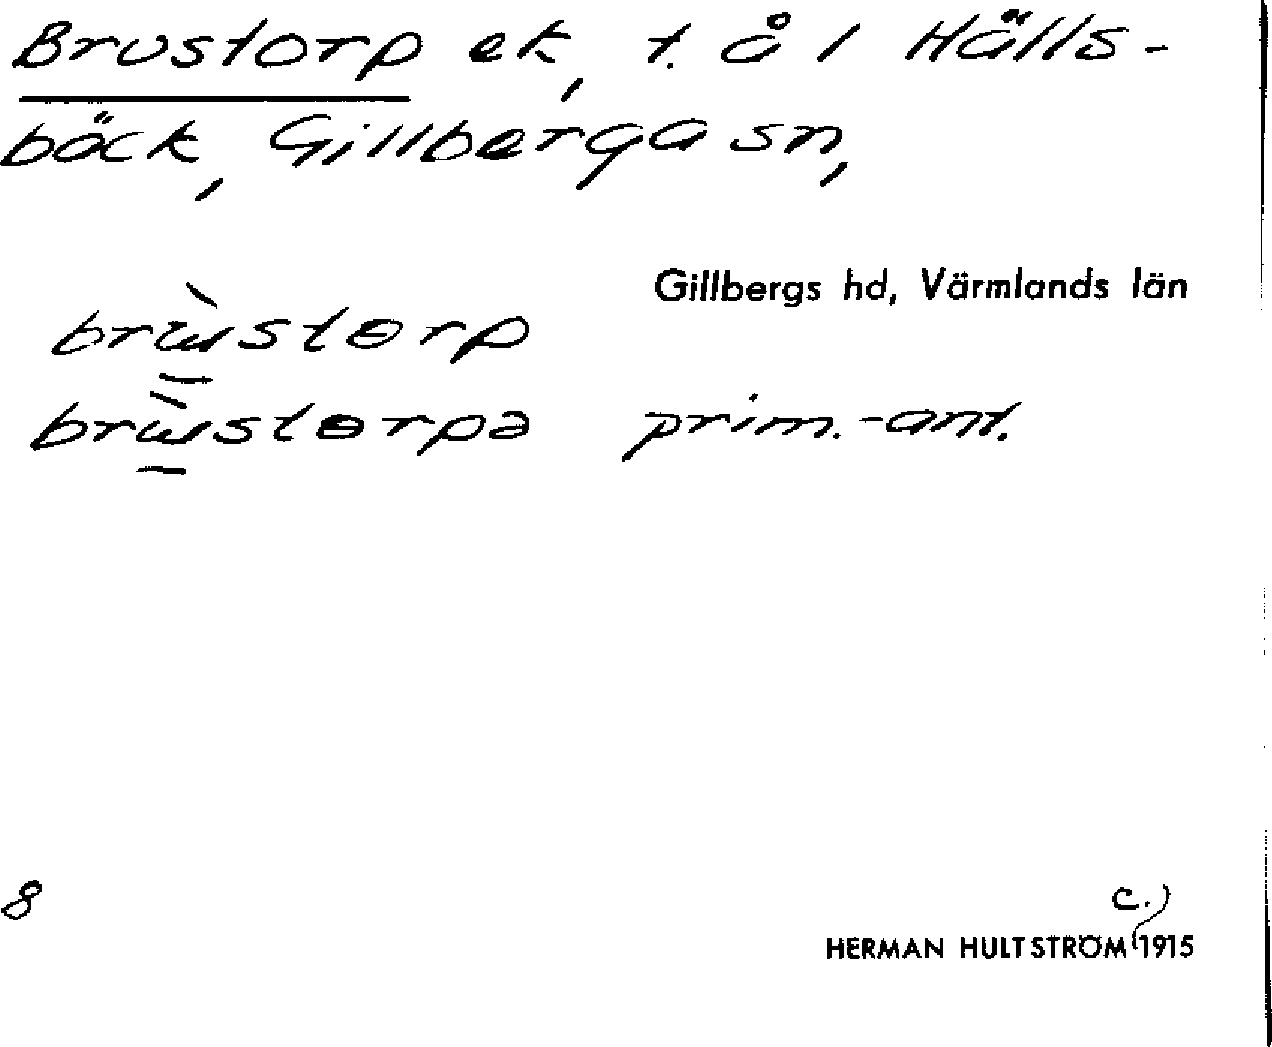 Brustorp ek, t. å 1 Hälls-
bäck, Gillberga sn,
Gillbergs hd, Värmlands län
prim.-ant.
8
c.)
HERMAN HULTSTRÖM 1915